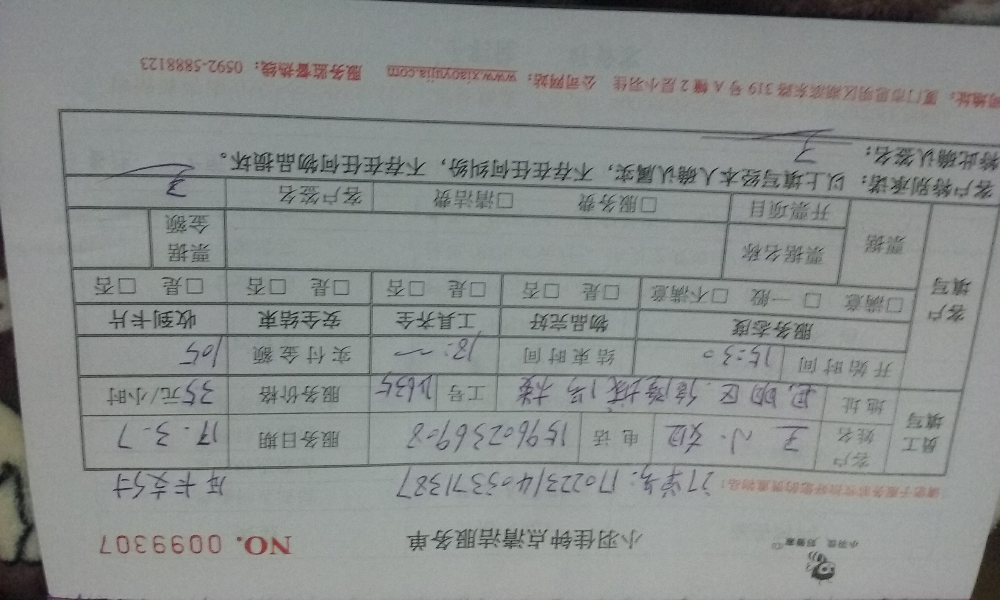 小羽佳钟点清洁服务单 NO. 0099307
订单号：170223140533771387 月卡支付
客户姓名 王小姐 电话 15960236908 服务日期 17.3.7
员工填写 地址 思明区 信隆城1号楼 工号 D635 服务价格 35元/小时
开始时间 15:30 结束时间 18:~ 实付金额 105
服务态度 物品完好 工具齐全 安全结束 收到卡片
客户填写 □满意 □一般 □不满意 □是 □否 □是 □否 □是 □否 □是 □否
票据 票据名称 票据金额
开票项目 □服务费 □清洁费 客户签名
客户特别承诺：以上填写经本人确认属实，不存在任何纠纷，不存在任何物品损坏。
特此确认签名：
厦门市思明区湖滨东路319号A幢2层小羽佳 公司网站：www.xiaoyujia.com 服务监督热线：0592-5888123